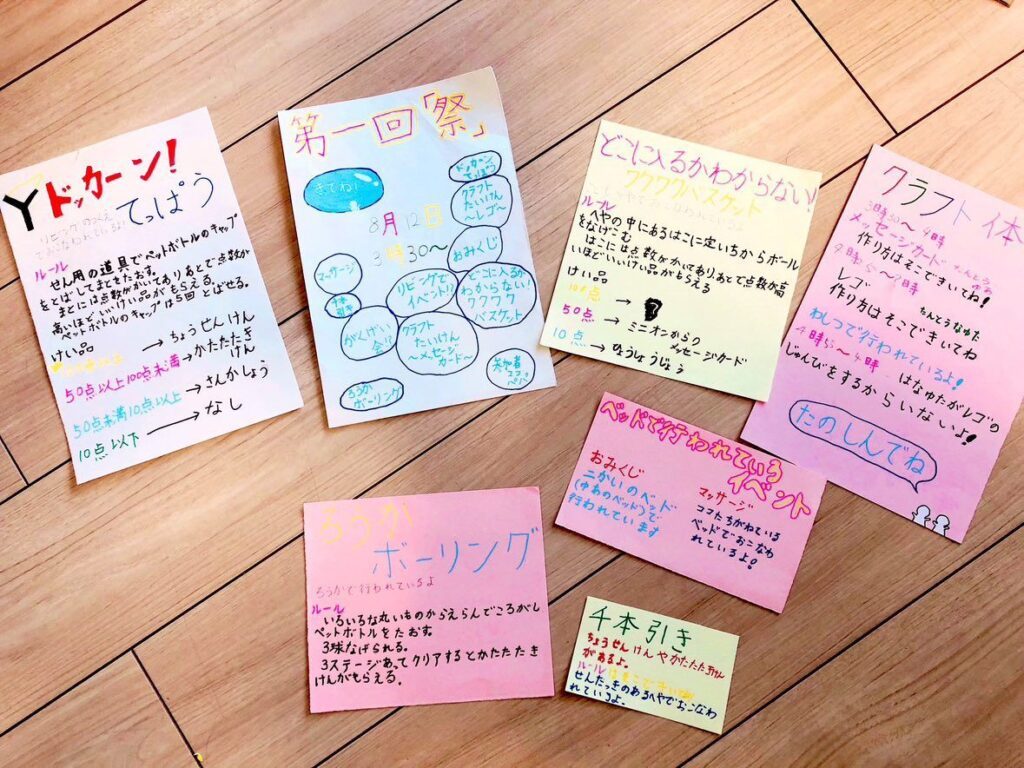 ドッカーン!
てっぽう
リビングのつくえ
でおこなわれているよ!
ルール
せん用の道具でペットボトルのキャップ
をとばしてまとをたおす。
まとには点数がかいてありあとで点数が
高いほどいいけい品がもらえる。
ペットボトルのキャップは5回とばせる。
けい品
→ちょうせんけん
50点以上100点未満→かたたたき
けん
50点未満10点以上→さんかしょう
10点以下→なし
第一回「祭」
きてね!
8月12日
3時30〜
ドッカーン
てっぽう
クラフト
たいけん
〜レゴ〜
おみくじ
マッサージ
千本
引き
リビングで
イベント!?
どこに入るか
わからない!
ワクワク
バスケット
がくげい
会!?
クラフト
たいけん
〜メッセージ
カード〜
ろうか
ボーリング
参加者
ココ、
パパ
どこに入るかわからない!
ワクワクバスケット
ルール
へやの中にあるはこに定いちからボール
をなげこむ
はこには点数がかいてありあとで点数が高
いほどいいけい品がもらえる
けい品
100点→
50点→ミニオンからク
メッセージカード
10点→ひょうしょうじょう
クラフト体
3時30〜4時
メッセージカード
作り方はそこできいてね!
レゴ
作り方はそこできいてね
わしつで行われているよ!
4時55〜4時
はなゆたがレゴの
じゅんびをするからいないよ!
たのしんでね
ベッドで行われている
イベント
おみくじ
二かいのベッド
(ゆあのベッド)で
行われています
マッサージ
ココたちがねている
ベッドでおこなわ
れているよ!
ろうか
ボーリング
ろうかで行われているよ
ルール
いろいろな丸いものからえらんでころがし
ペットボトルをたおす。
3球なげられる。
3ステージあってクリアするとかたたたき
けんがもらえる。
千本引き
ちょうせんけんやかたたたきけん
があるよ。
ルールはそこできいてね
せんたっきのあるへやでおこなわ
れているよ。